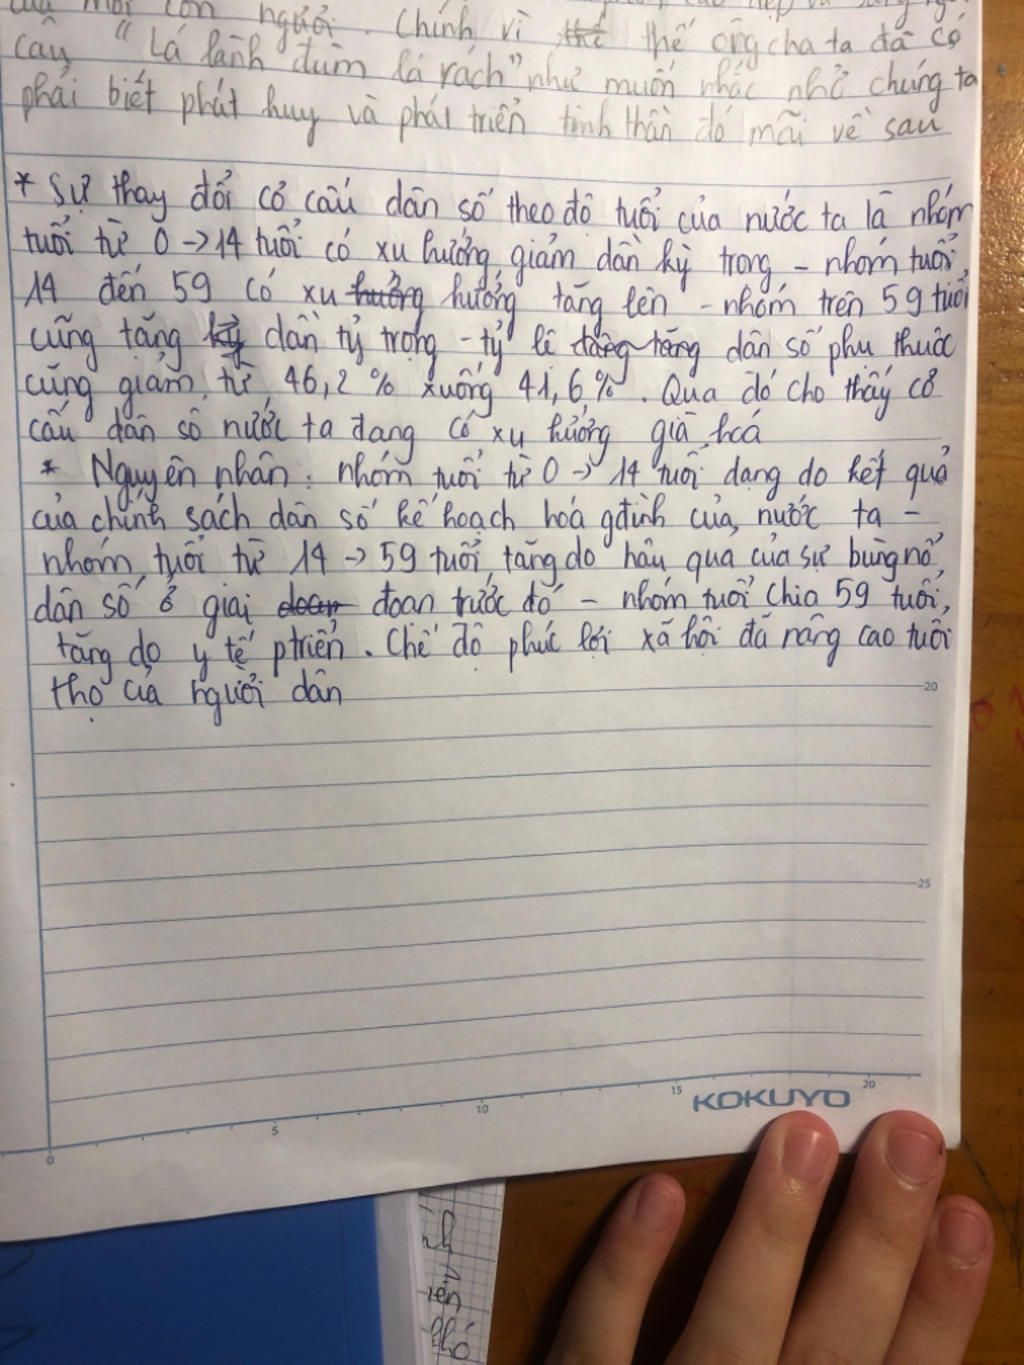 của mỗi con người. Chính vì thế thế ông cha ta đã có
câu "Lá lành đùm lá rách" như muốn nhắc nhở chúng ta
phải biết phát huy và phát triển tinh thần đó mãi về sau
* Sự thay đổi cơ cấu dân số theo độ tuổi của nước ta là nhóm
tuổi từ 0 → 14 tuổi có xu hướng giảm dần kỳ trong - nhóm tuổi
14 đến 59 có xu hưởng hướng tăng lên - nhóm trên 59 tuổi
cũng tăng kỷ dần tỷ trọng - tỷ lê tăng tăng dân số phu thuôc
cũng giảm từ 46,2 % xuống 41,6 %. Qua đó cho thấy cơ
cấu dân sô nước ta đang có xu hướng già hoá
* Nguyên nhân: nhóm tuổi từ 0 → 14 tuổi dạng do kết quả
của chính sách dân số kế hoạch hoá gđình của nước ta -
nhóm tuổi từ 14 → 59 tuổi tăng do hâu qua của sự bùng nổ
dân số ở giai đoan đoan trước đó - nhóm tuổi Chia 59 tuổi,
tăng do y tế ptriển. Chế độ phúc lợi xã hôi đã nâng cao tuôi
thọ của người dân
20
25
0 5 10 15 20
KOKUYO